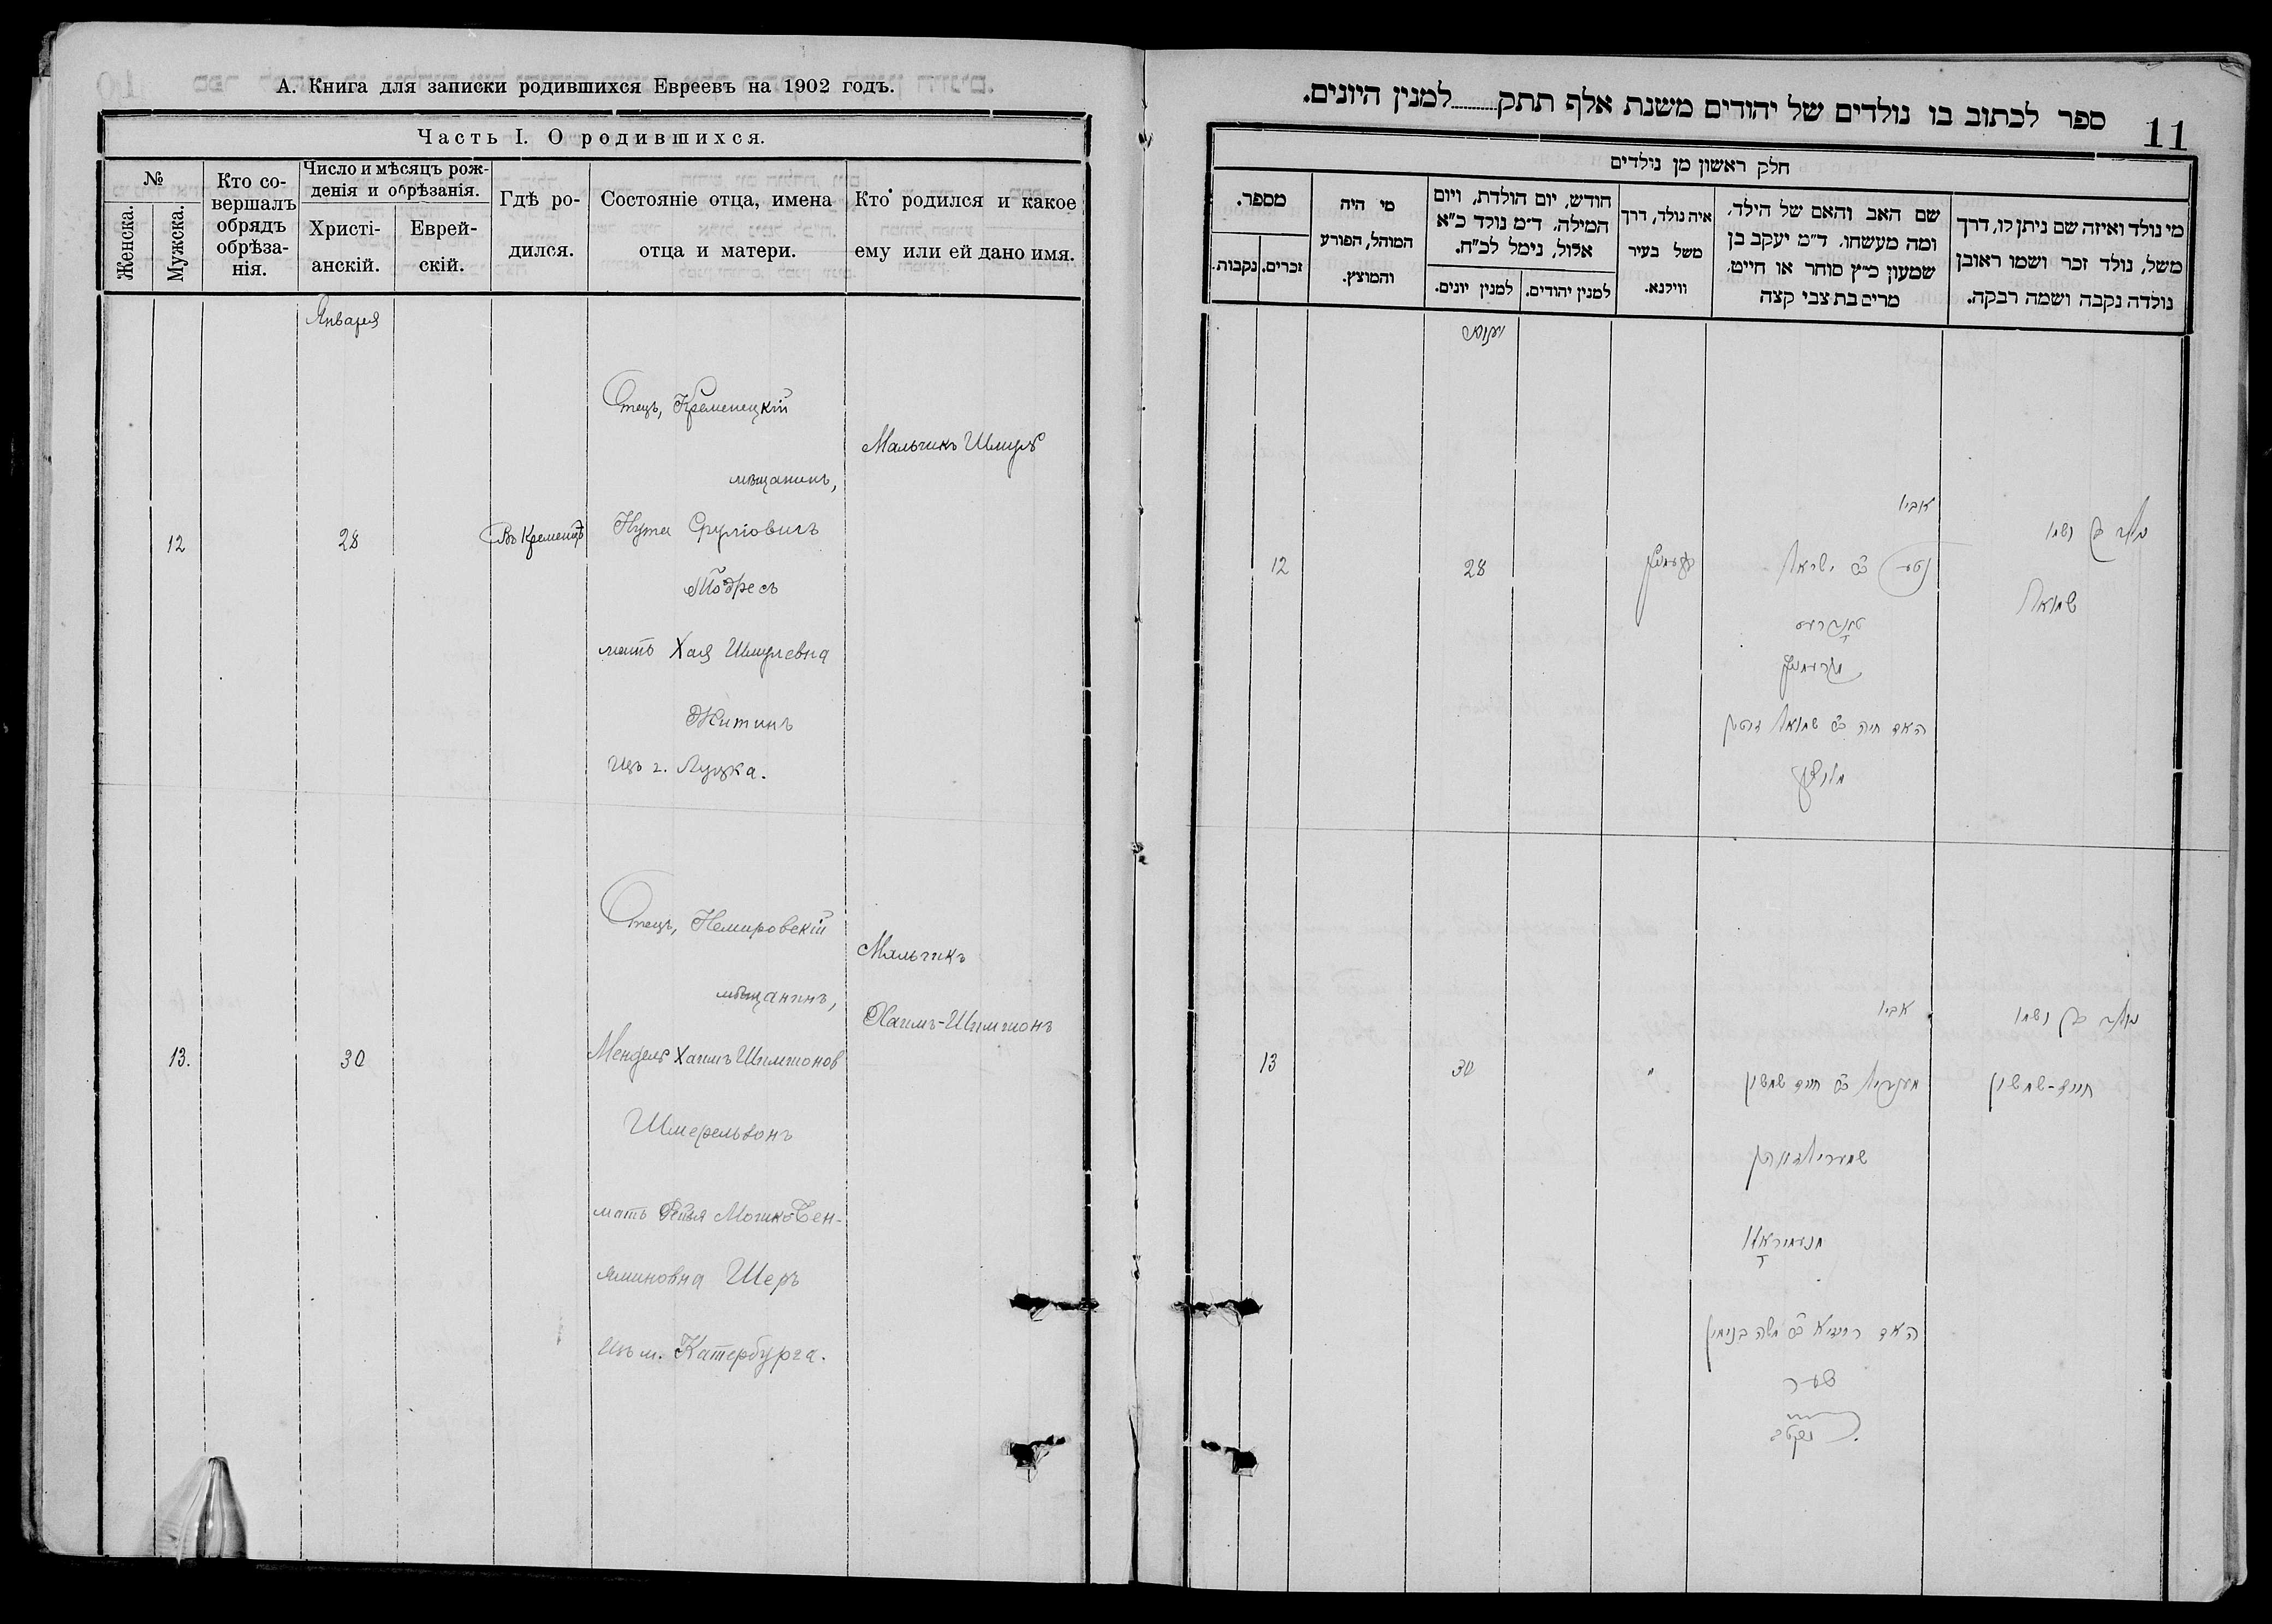 А. Книга для записки родившихся Евреевъ на 1902 годъ.
Часть I. О родившихся.
№
Женска.
Мужска.
Кто со-
вершалъ
обрядъ
обрѣза-
нія.
Число и мѣсяцъ рож-
денія и обрѣзанія.
Христі-
анскій.
Еврей-
скій.
Гдѣ ро-
дился.
Состояніе отца, имена
отца и матери.
Кто родился и какое
ему или ей дано имя.
Января
12
28
Въ Кременцѣ
Отецъ, Кременецкій
мѣщанинъ,
Нута Сруліовичъ
Тодресъ
мать Хая Шмулевна
Житинъ
изъ г. Луцка.
Мальчикъ Шмуль
13.
30
Отецъ, Немировскій
мѣщанинъ,
Мендель Хаимъ Шимшонов
Шмерельзонъ
мать Рейзя Мошко-Бен-
яминовна Шеръ
изъ м. Катербурга.
Мальчикъ
Хаимъ-Шимшонъ
ספר לכתוב בו נולדים של יהודים משנת אלף תתק למנין היונים.
11
חלק ראשון מן נולדים
מי נולד ואיזה שם ניתן לו, דרך
משל, נולד זכר ושמו ראובן
נולדה נקבה ושמה רבקה.
שם האב והאם של הילד,
ומה מעשהו. ד״מ יעקב בן
שמעון כ״ץ סוחר או חייט,
מרים בת צבי קצה
איה נולד, דרך
משל בעיר
ווילנא.
חודש, יום הולדת, ויום
המילה, ד״מ נולד כ״א
אלול, נימל לכ״ח.
למנין יהודים.
למנין יונים.
מי היה
המוהל, הפורע
והמוצץ.
מספר.
זכרים.
נקבות.
12
28
אביו
נטע ב״ר ישראל
האם חיה ב״ר שמואל
נולד בן ושמו
שמואל
13
30
"
אביו
מענדיל ב״ר חיים שמשון
שמערילזון
האם רייזיא ב״ר משה בנימין
שער
נולד בן ושמו
חיים-שמשון